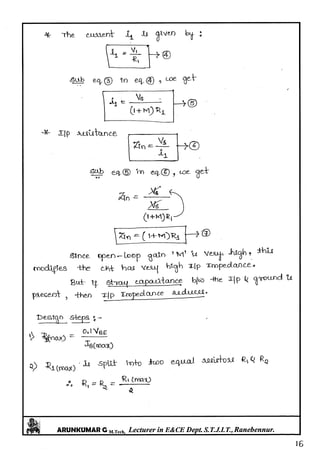 * The current i₁ is given by :
i₁ = V₁/R₁ → ④
Sub eq ③ in eq ④, we get
i₁ = Vs/((1+M) R₁) → ⑤
* I/p resistance
Zin = Vs/i₁ → ⑥
Sub eq ⑤ in eq ⑥, we get
Zin = Vs/(Vs/((1+M)R₁))
Zin = (1+M)R₁ → ⑦
Since open-loop gain 'M' is very high, this
modifies the ckt has very high I/p Impedance.
But If stray capacitance b/w the I/p & ground is
present, then I/p Impedance reduces.
Design steps :-
1) R₁(max) = 0.1VBE/IB(max)
2) R₁(max) is split into two equal resistors R₁ & R₂
∴ R₁ = R₂ = R₁(max)/2
ARUNKUMAR G M.Tech, Lecturer in E&CE Dept. S.T.J.I.T., Ranebennur.
16